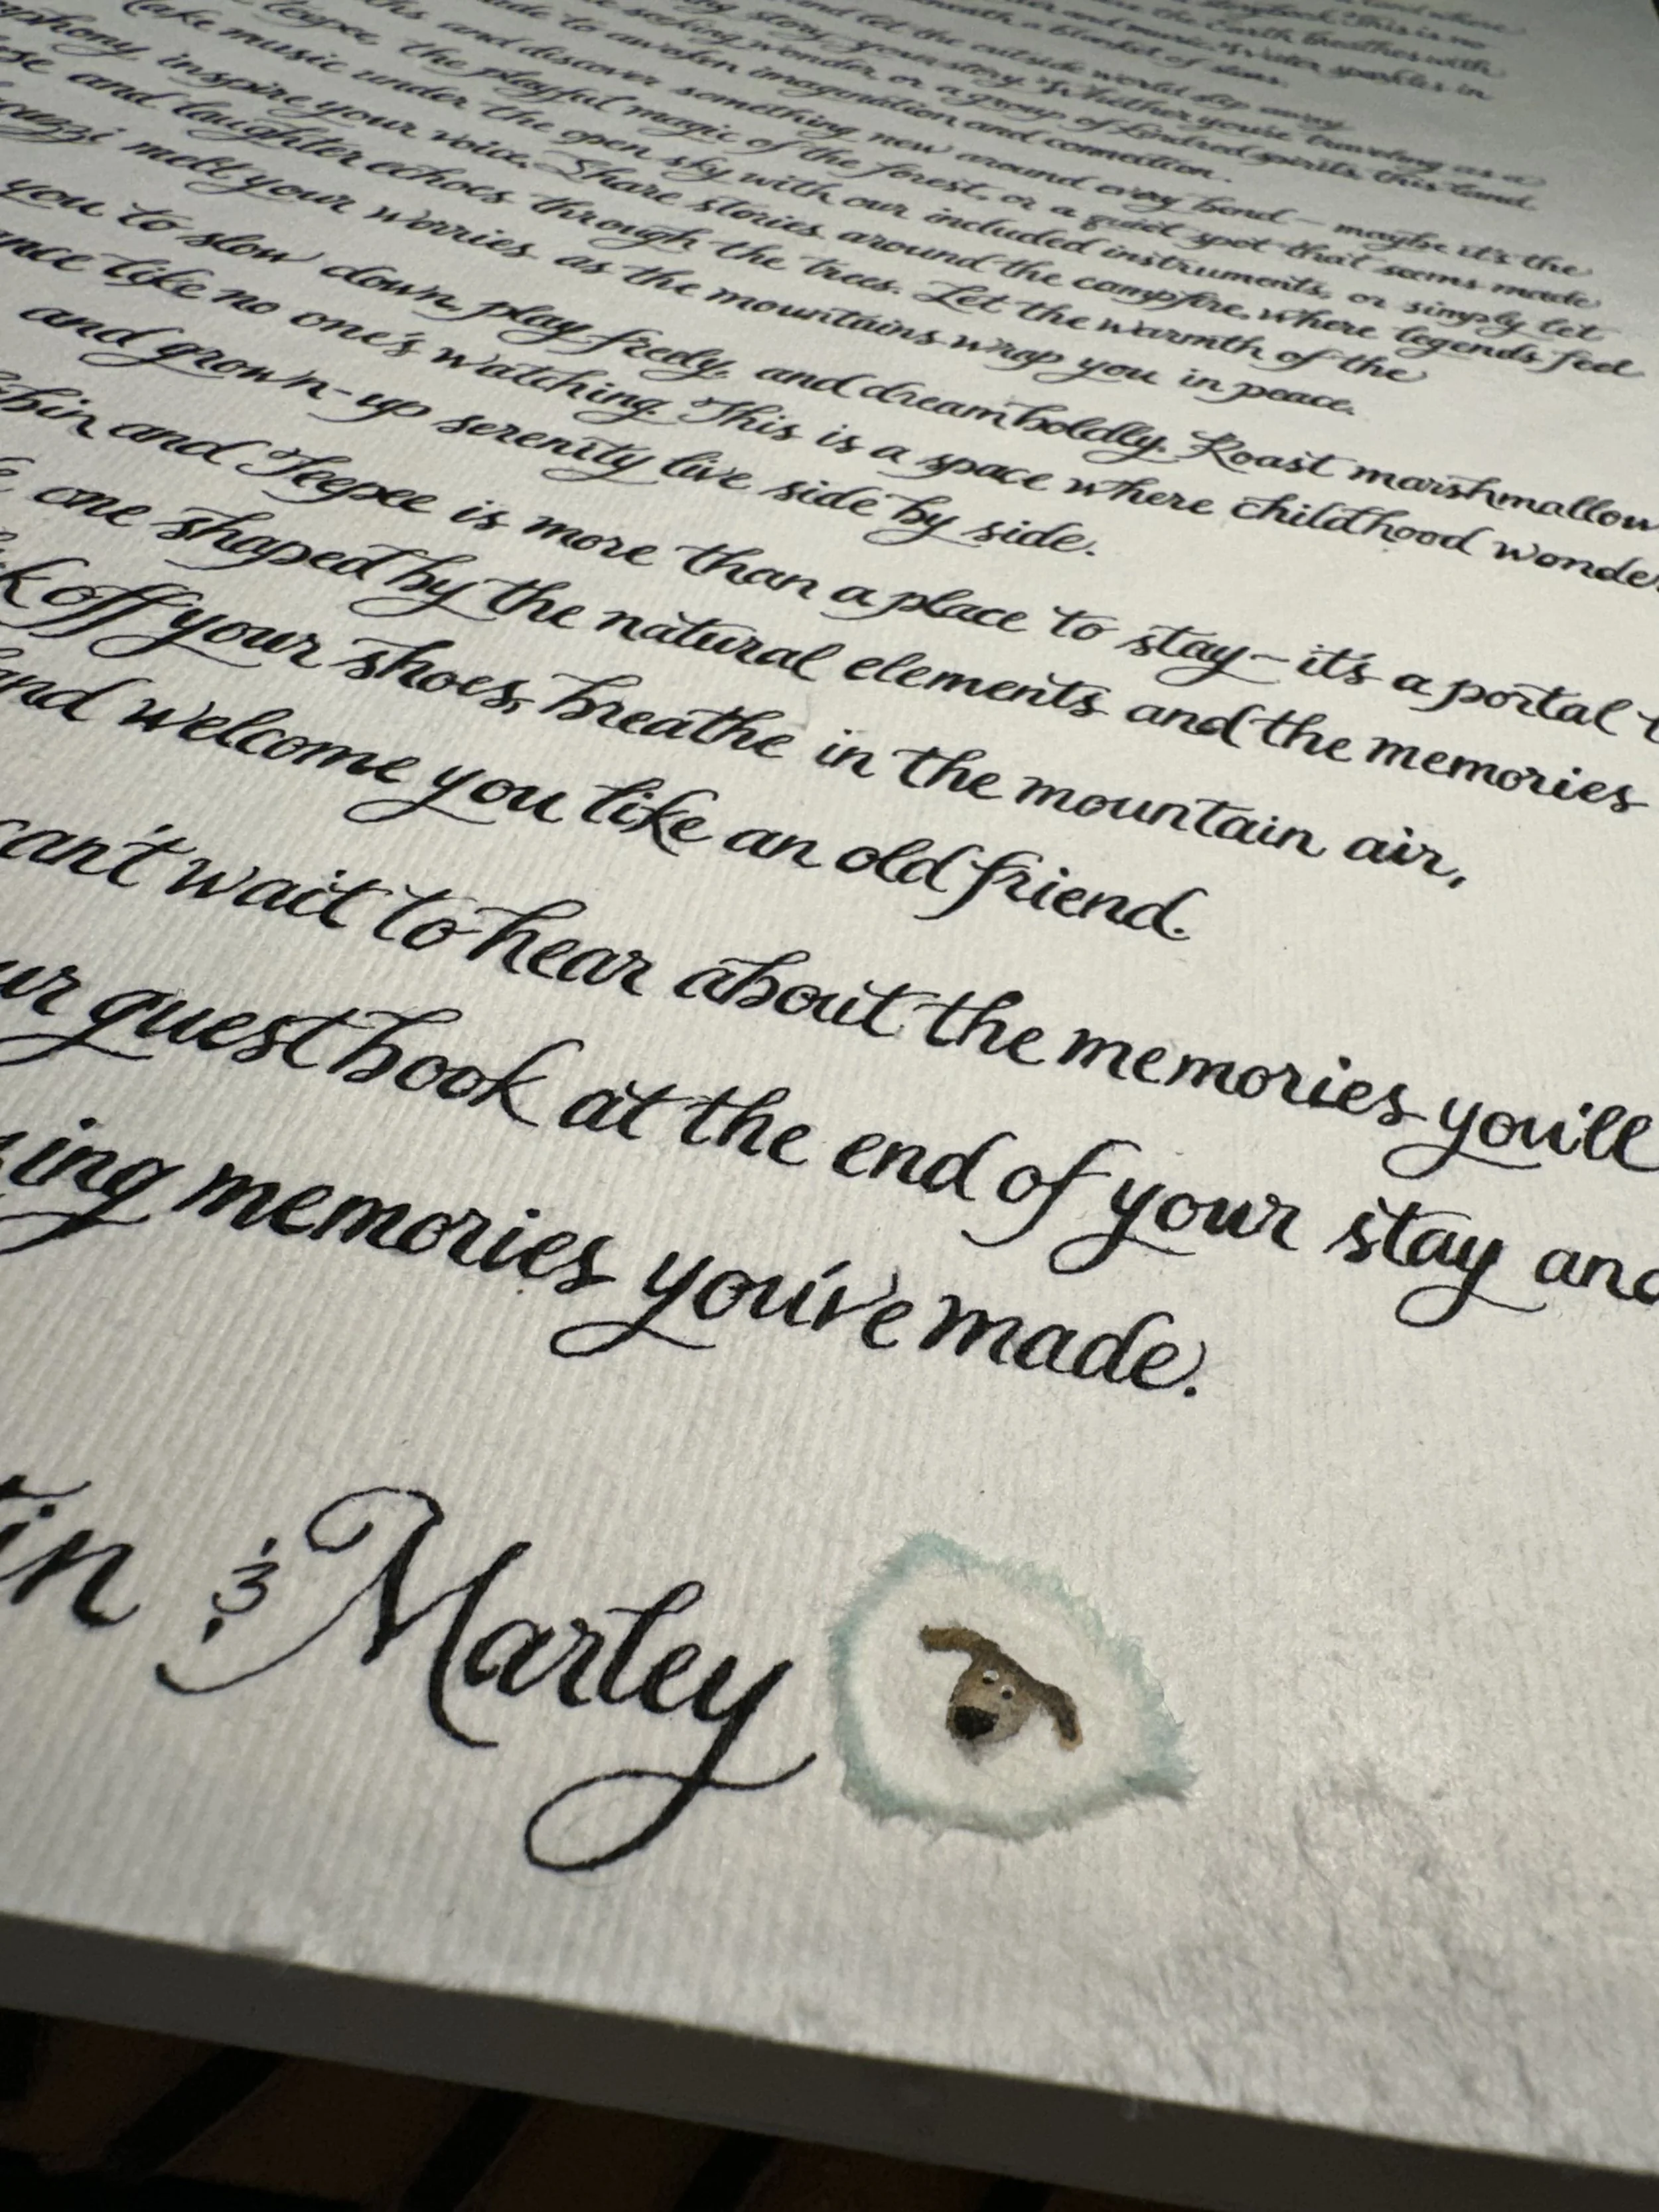 land where
storybook. This is no
the Earth breathes with
and music. Water sparkles in
a blanket of stars.
and let the outside world slip away
story, your story. Whether you're traveling as a
seeking wonder, or a group of kindred spirits, this land
to awaken imagination and connection.
and discover something new around every bend – maybe it's the
teepee, the playful magic of the forest, or a quiet spot that seems made
Make music under the open sky with our included instruments, or simply let
phony inspire your voice. Share stories around the campfire, where legends feel
and laughter echoes through the trees. Let the warmth of the
melt your worries as the mountains wrap you in peace.
you to slow down, play freely, and dream boldly. Roast marshmallow
like no one's watching. This is a space where childhood wonder
and grown-up serenity live side by side.
bin and Teepee is more than a place to stay – it's a portal t
one shaped by the natural elements and the memories
k off your shoes, breathe in the mountain air,
and welcome you like an old friend.
can't wait to hear about the memories you'll
ur guest book at the end of your stay and
ing memories you've made.
tin & Marley